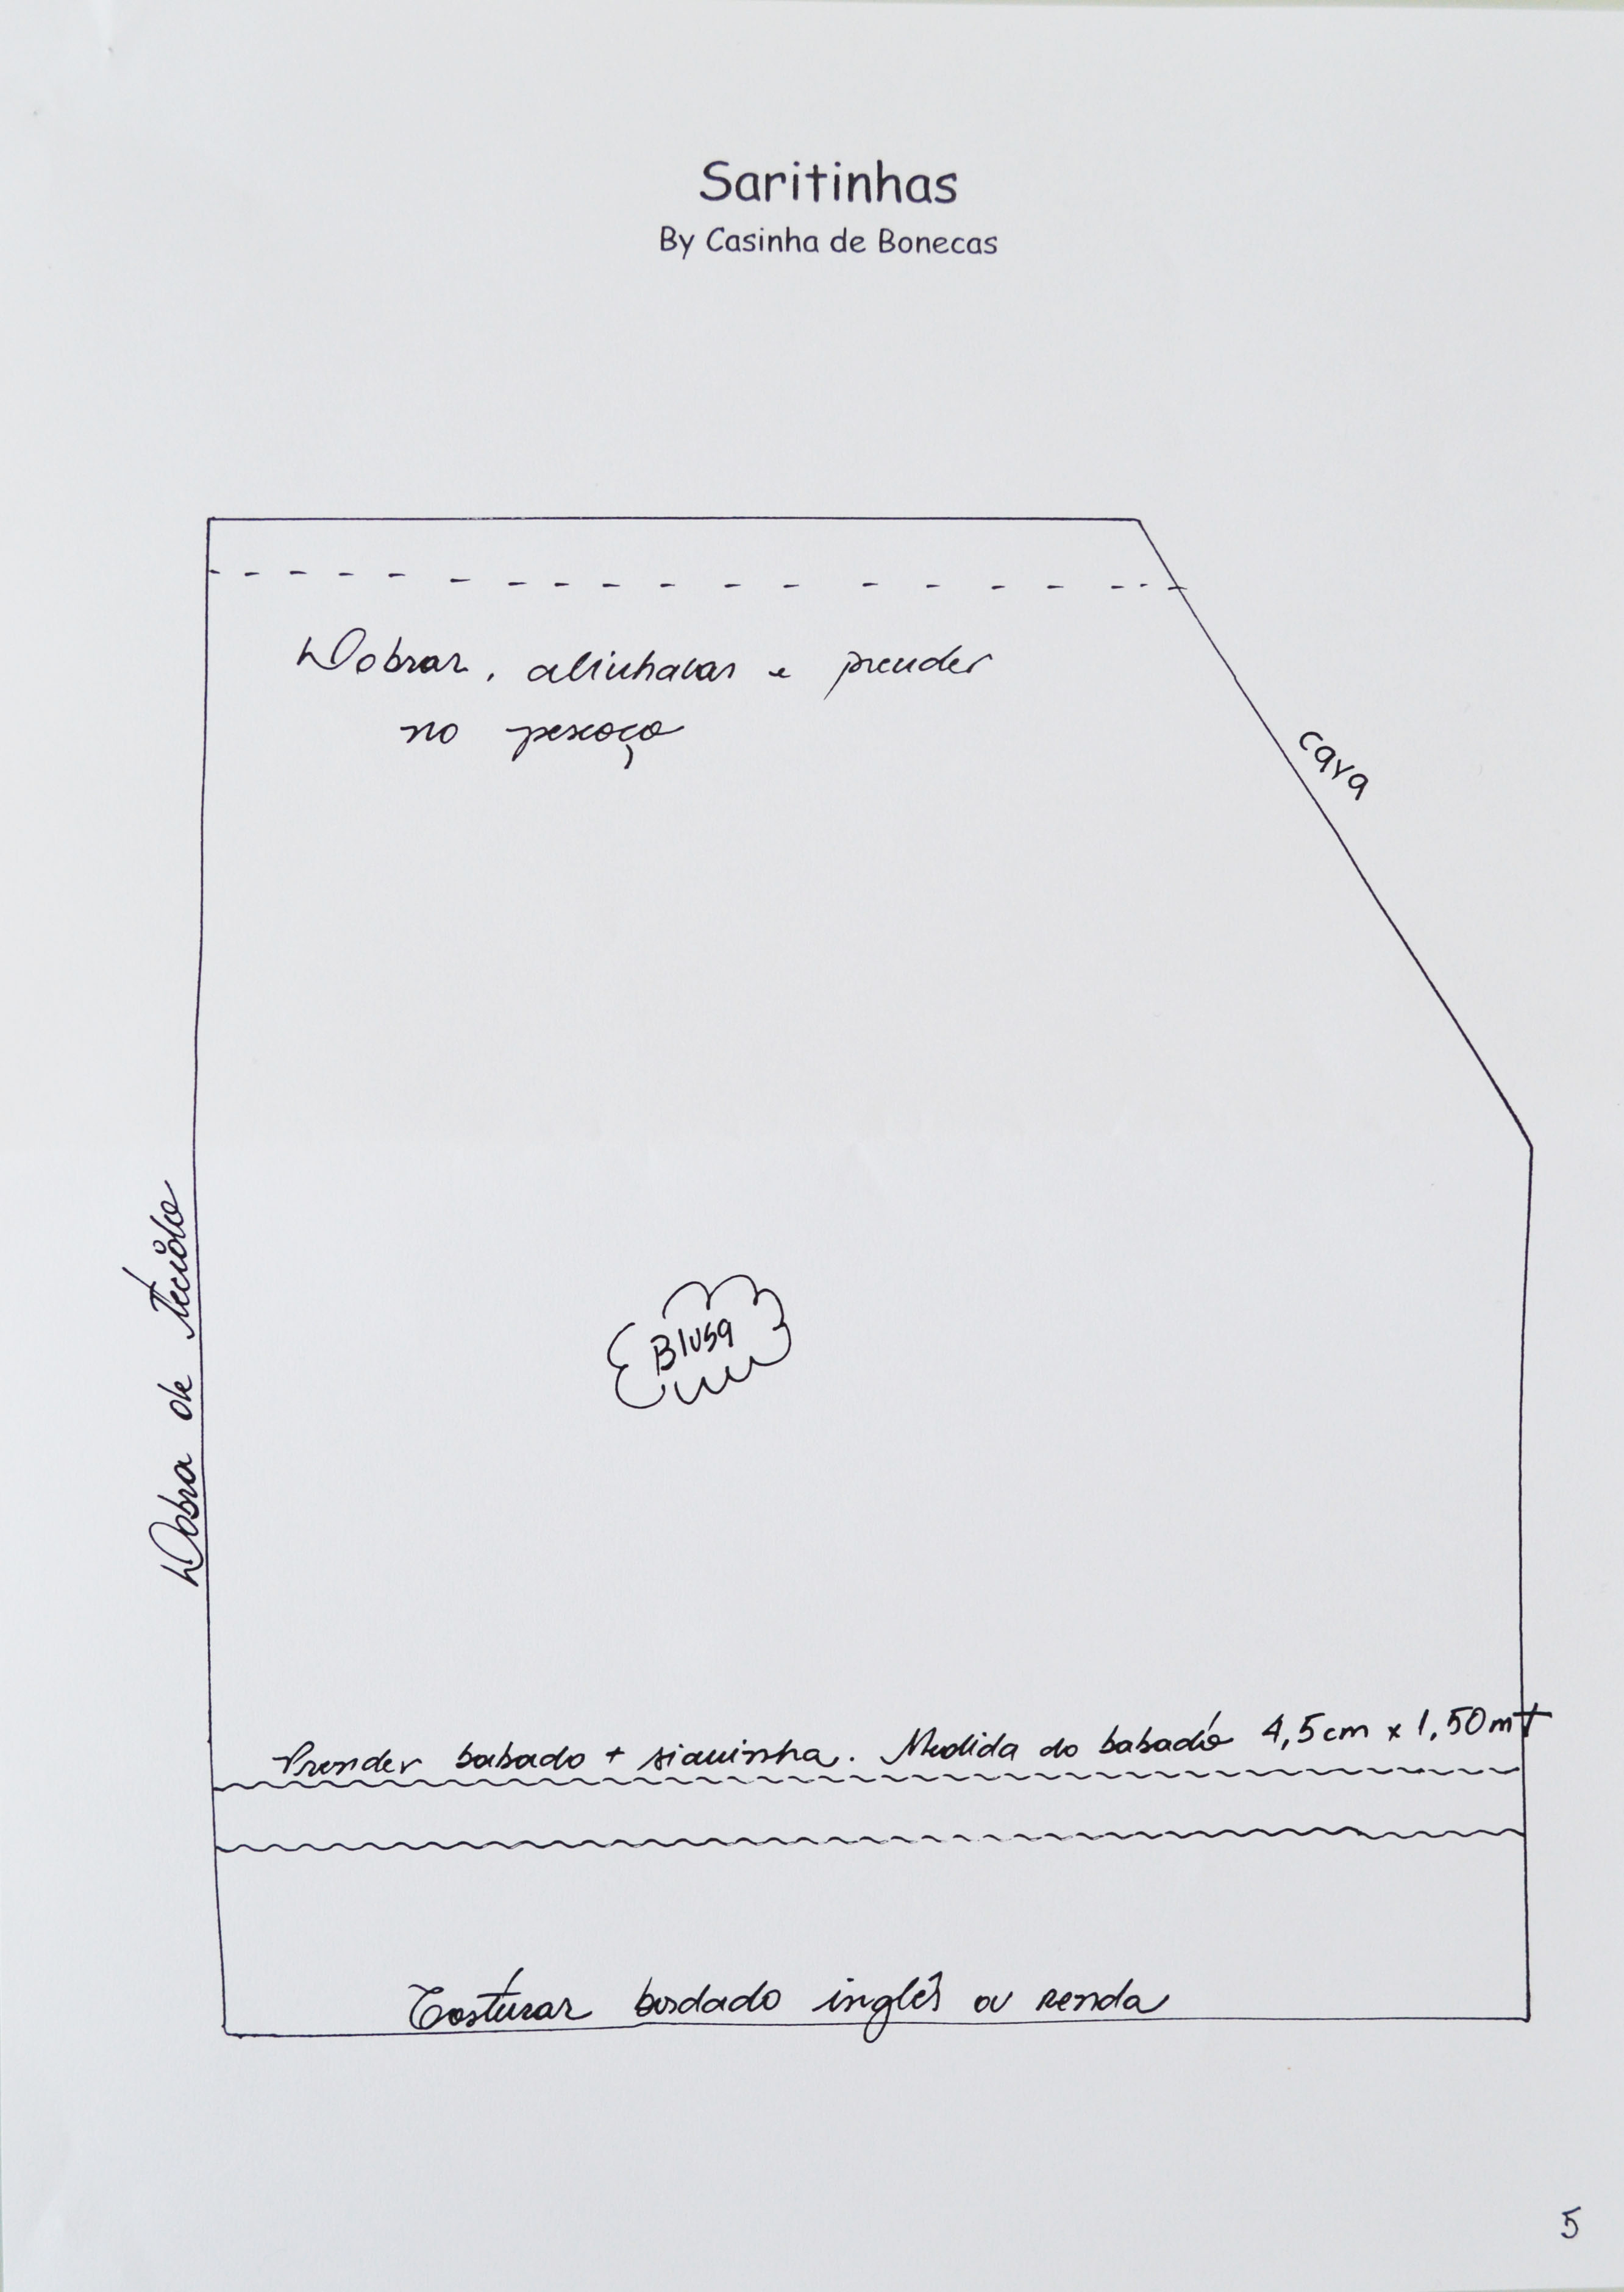 Saritinhas
By Casinha de Bonecas
Dobrar, alinhavar e prender
no pescoço
cava
Dobra de tecido
Blusa
Prender babado + sianinha. Medida do babado 4,5cm x 1,50mt
Costurar bordado inglês ou renda
5